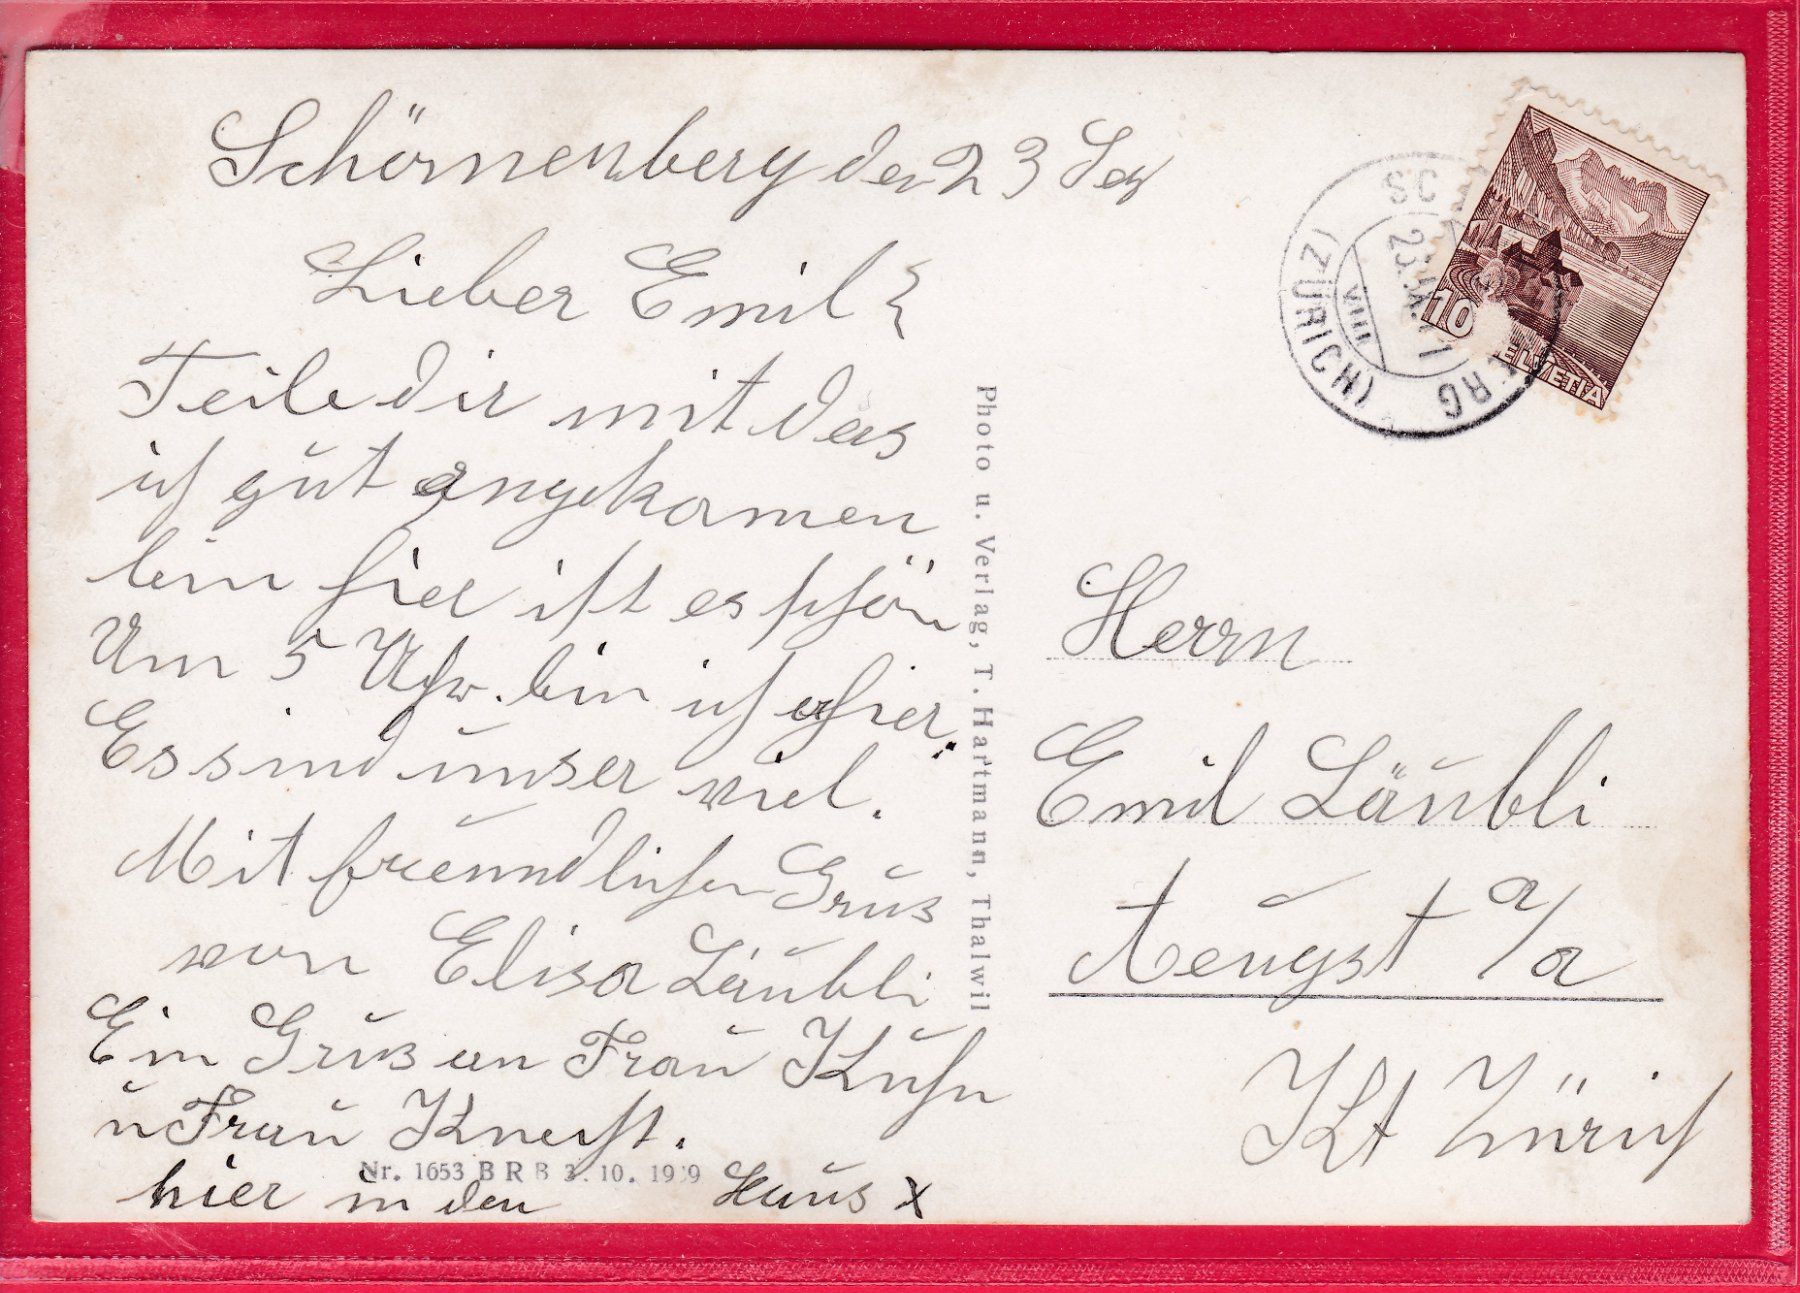 Schörnenberg den 23 Sep
Lieber Emil
Teile dir mit das
ich gut angekomen
bin hier ist es schön
Um 5 Uhr. bin ich hier.
Es sind unser viel.
Mit freundlichen Grus
von Elisa Läubli
Ein Grus an Frau Kuhn
u Frau Knecht.
hier in den Haus x
Nr. 1653 B R B 3. 10. 1939
Photo u. Verlag, T. Hartmann, Thalwil
SC ERG
23.IX.
VIII
(ZÜRICH)
10
HELVETIA
Herrn
Emil Läubli
Aeugst a/a
Kt Zürich